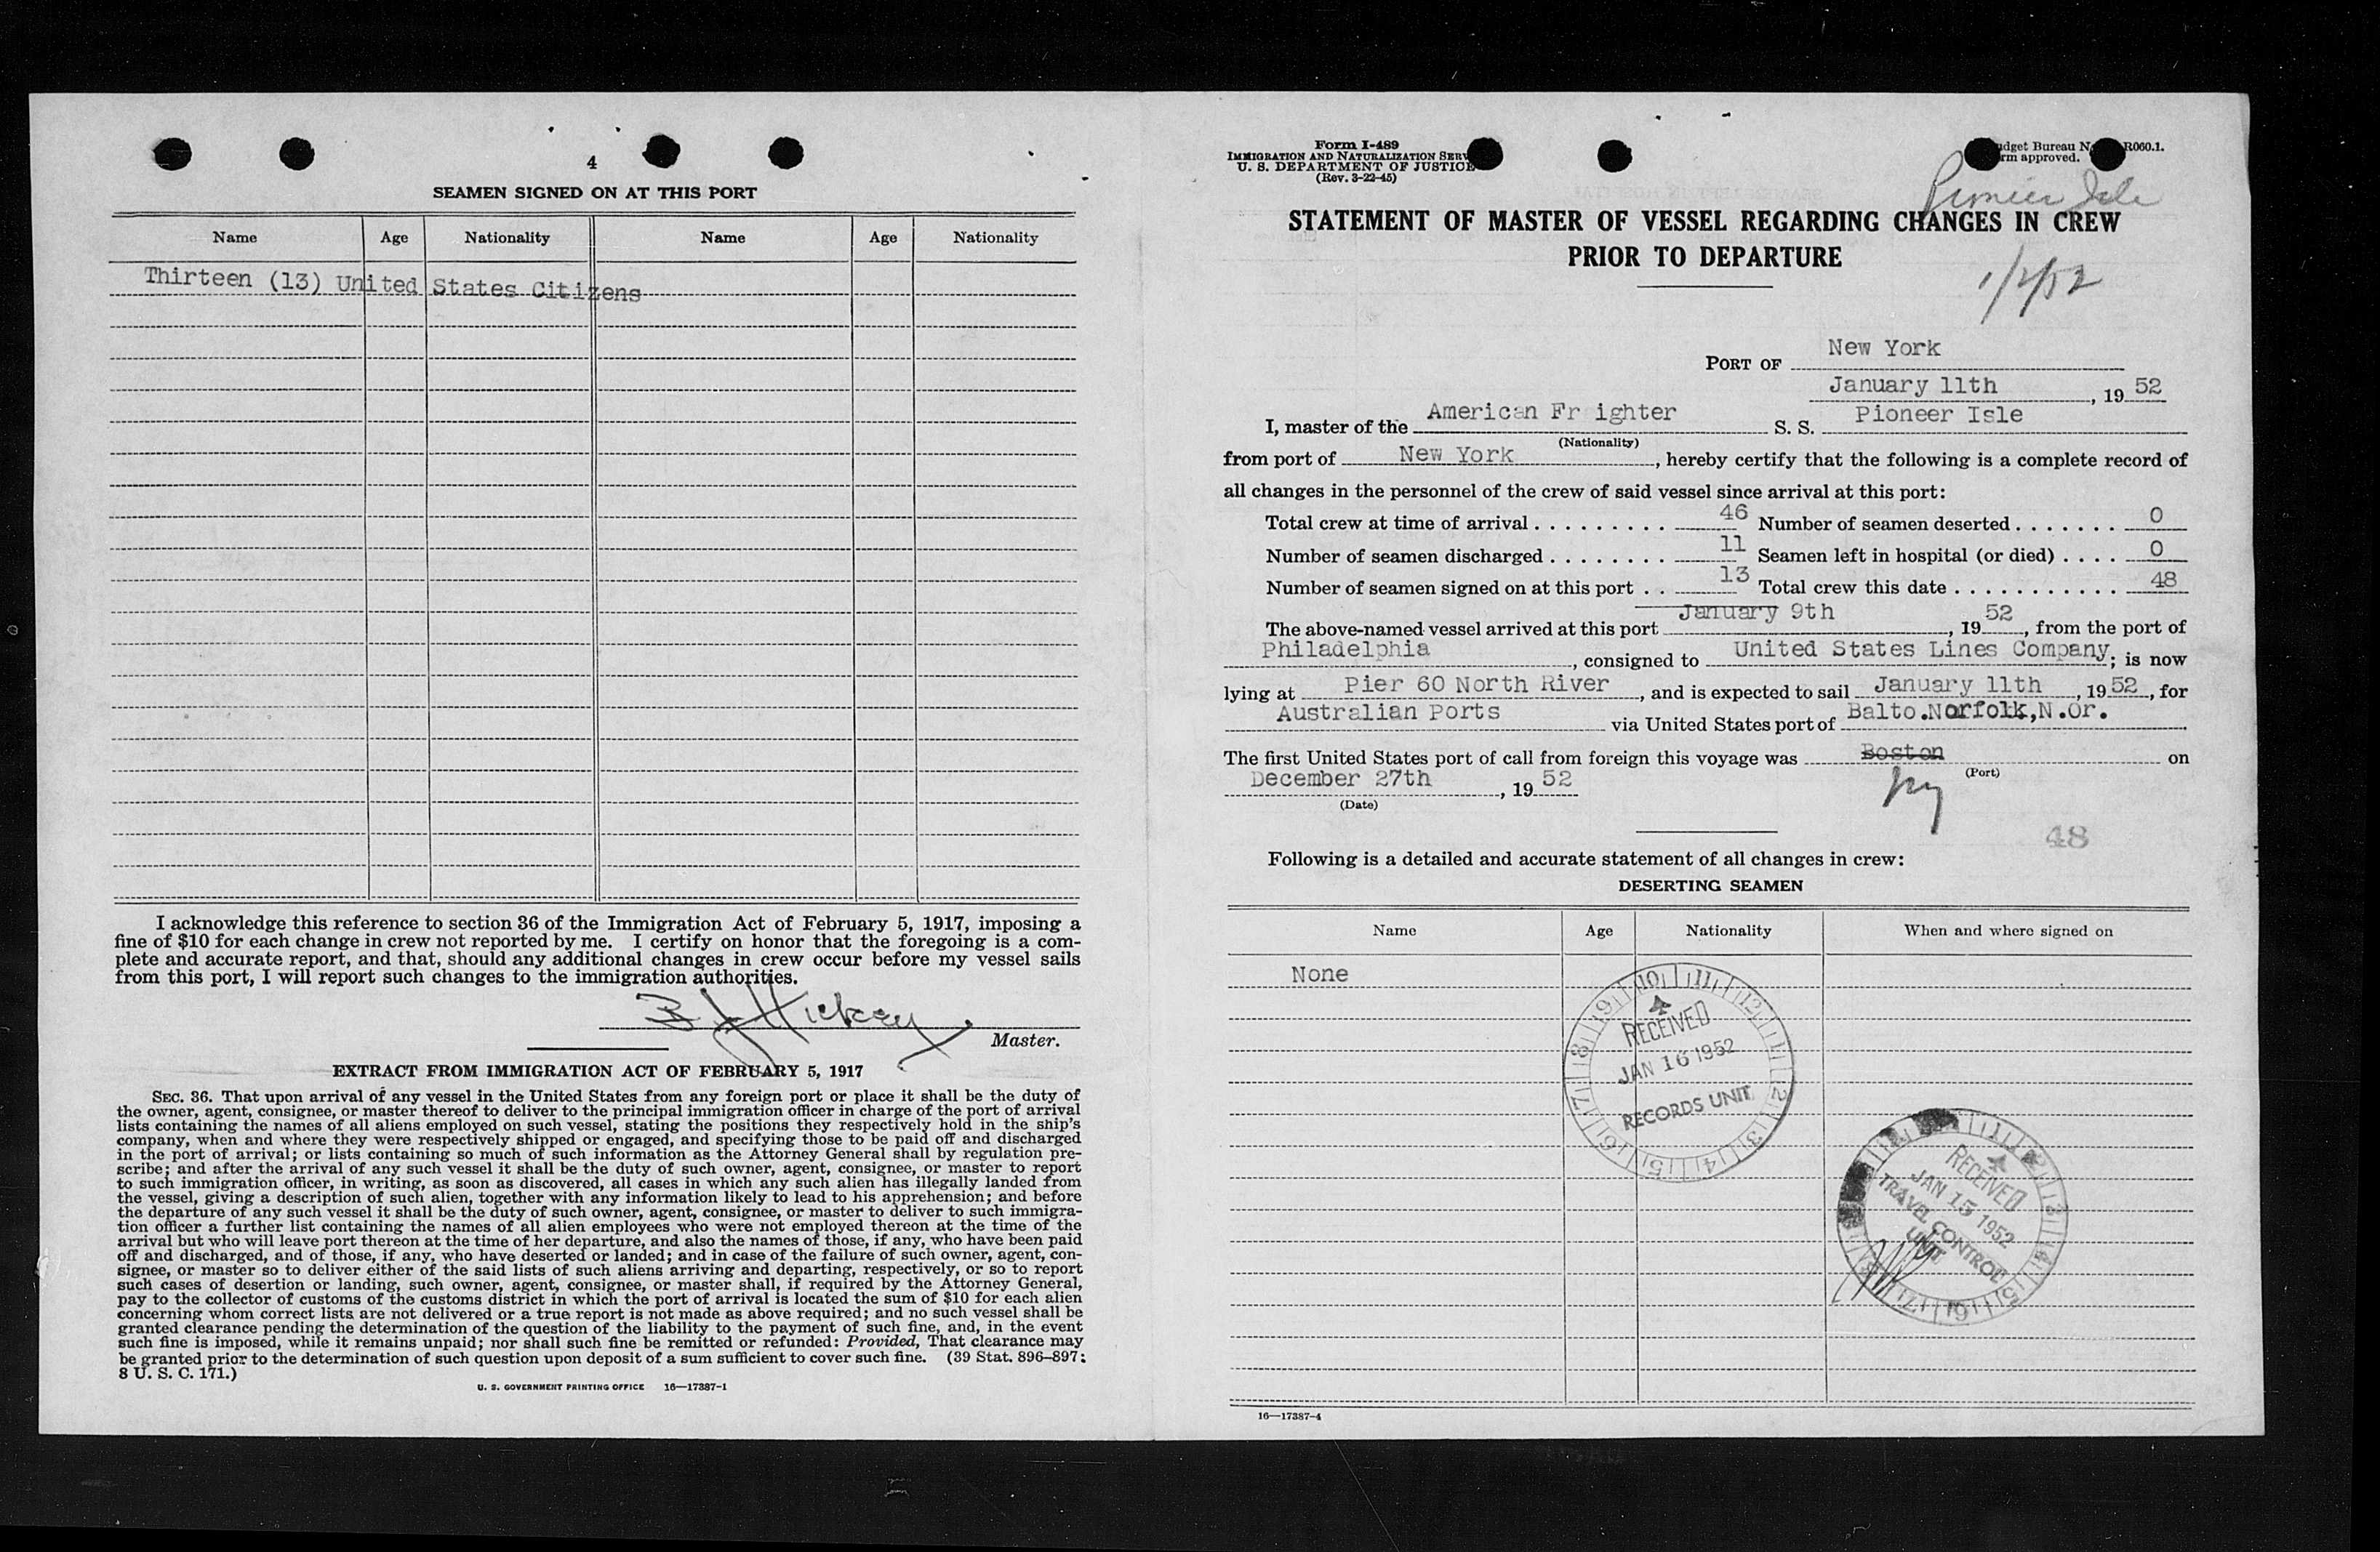 4
SEAMEN SIGNED ON AT THIS PORT
Name Age Nationality Name Age Nationality
Thirteen (13) United States Citizens
I acknowledge this reference to section 36 of the Immigration Act of February 5, 1917, imposing a
fine of $10 for each change in crew not reported by me. I certify on honor that the foregoing is a com-
plete and accurate report, and that, should any additional changes in crew occur before my vessel sails
from this port, I will report such changes to the immigration authorities.
B J Hickey
Master.
EXTRACT FROM IMMIGRATION ACT OF FEBRUARY 5, 1917
SEC. 36. That upon arrival of any vessel in the United States from any foreign port or place it shall be the duty of
the owner, agent, consignee, or master thereof to deliver to the principal immigration officer in charge of the port of arrival
lists containing the names of all aliens employed on such vessel, stating the positions they respectively hold in the ship's
company, when and where they were respectively shipped or engaged, and specifying those to be paid off and discharged
in the port of arrival; or lists containing so much of such information as the Attorney General shall by regulation pre-
scribe; and after the arrival of any such vessel it shall be the duty of such owner, agent, consignee, or master to report
to such immigration officer, in writing, as soon as discovered, all cases in which any such alien has illegally landed from
the vessel, giving a description of such alien, together with any information likely to lead to his apprehension; and before
the departure of any such vessel it shall be the duty of such owner, agent, consignee, or master to deliver to such immigra-
tion officer a further list containing the names of all alien employees who were not employed thereon at the time of the
arrival but who will leave port thereon at the time of her departure, and also the names of those, if any, who have been paid
off and discharged, and of those, if any, who have deserted or landed; and in case of the failure of such owner, agent, con-
signee, or master so to deliver either of the said lists of such aliens arriving and departing, respectively, or so to report
such cases of desertion or landing, such owner, agent, consignee, or master shall, if required by the Attorney General,
pay to the collector of customs of the customs district in which the port of arrival is located the sum of $10 for each alien
concerning whom correct lists are not delivered or a true report is not made as above required; and no such vessel shall be
granted clearance pending the determination of the question of the liability to the payment of such fine, and, in the event
such fine is imposed, while it remains unpaid; nor shall such fine be remitted or refunded: Provided, That clearance may
be granted prior to the determination of such question upon deposit of a sum sufficient to cover such fine. (39 Stat. 896–897;
8 U. S. C. 171.)
U. S. GOVERNMENT PRINTING OFFICE 16—17387-1
Form I-489
IMMIGRATION AND NATURALIZATION SERV
U. S. DEPARTMENT OF JUSTICE
(Rev. 3-22-45)
dget Bureau N R060.1.
rm approved.
Pioneer Isle
STATEMENT OF MASTER OF VESSEL REGARDING CHANGES IN CREW
PRIOR TO DEPARTURE
PORT OF New York
January 11th, 19 52
I, master of the American Fr ighter S. S. Pioneer Isle
(Nationality)
from port of New York, hereby certify that the following is a complete record of
all changes in the personnel of the crew of said vessel since arrival at this port:
Total crew at time of arrival . . . . . . . . . 46 Number of seamen deserted . . . . . . . 0
Number of seamen discharged . . . . . . . . 11 Seamen left in hospital (or died) . . . . 0
Number of seamen signed on at this port . . 13 Total crew this date . . . . . . . . . . . 48
The above-named vessel arrived at this port January 9th, 19 52, from the port of
Philadelphia, consigned to United States Lines Company; is now
lying at Pier 60 North River, and is expected to sail January 11th, 19 52, for
Australian Ports via United States port of Balto.Norfolk,N.Or.
The first United States port of call from foreign this voyage was Boston on
(Port)
December 27th, 19 52
(Date)
ny
48
Following is a detailed and accurate statement of all changes in crew:
DESERTING SEAMEN
Name Age Nationality When and where signed on
None
RECEIVED
JAN 16 1952
RECORDS UNIT
RECEIVED
JAN 15 1952
TRAVEL CONTROL
UNIT
16—17387-4